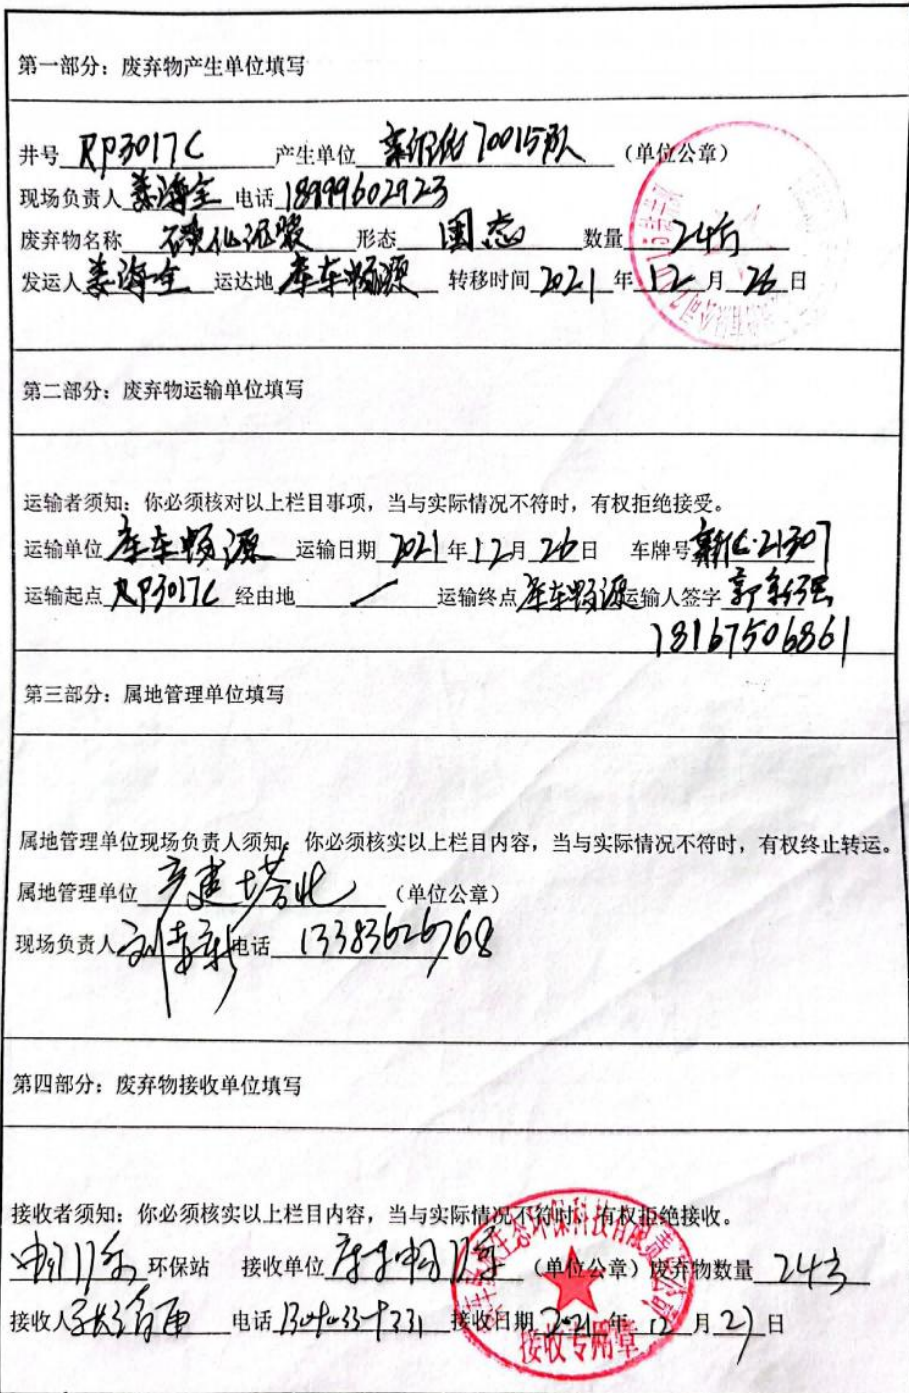 第一部分：废弃物产生单位填写
井号 RP3017C 产生单位 70015队 （单位公章）
现场负责人 姜海全 电话 18999602923
废弃物名称 磺化泥浆 形态 固态 数量 24方
发运人 姜海全 运达地 库车畅源 转移时间 2021 年 12 月 26 日
第二部分：废弃物运输单位填写
运输者须知：你必须核对以上栏目事项，当与实际情况不符时，有权拒绝接受。
运输单位 库车畅源 运输日期 2021 年 12 月 26 日 车牌号 新 21307
运输起点 RP3017C 经由地 / 运输终点 库车畅源 运输人签字 郭新强
18167506861
第三部分：属地管理单位填写
属地管理单位现场负责人须知，你必须核实以上栏目内容，当与实际情况不符时，有权终止转运。
属地管理单位 塔北 （单位公章）
现场负责人 电话 13383626768
第四部分：废弃物接收单位填写
接收者须知：你必须核实以上栏目内容，当与实际情况不符时，有权拒绝接收。
环保站 接收单位 （单位公章） 废弃物数量 24方
接收人 电话 接收日期 2021 年 12 月 27 日
生态环保科技有限责任公司
接收专用章